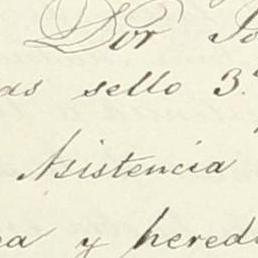 Por
as sello 3.
Asistencia
ea y hered